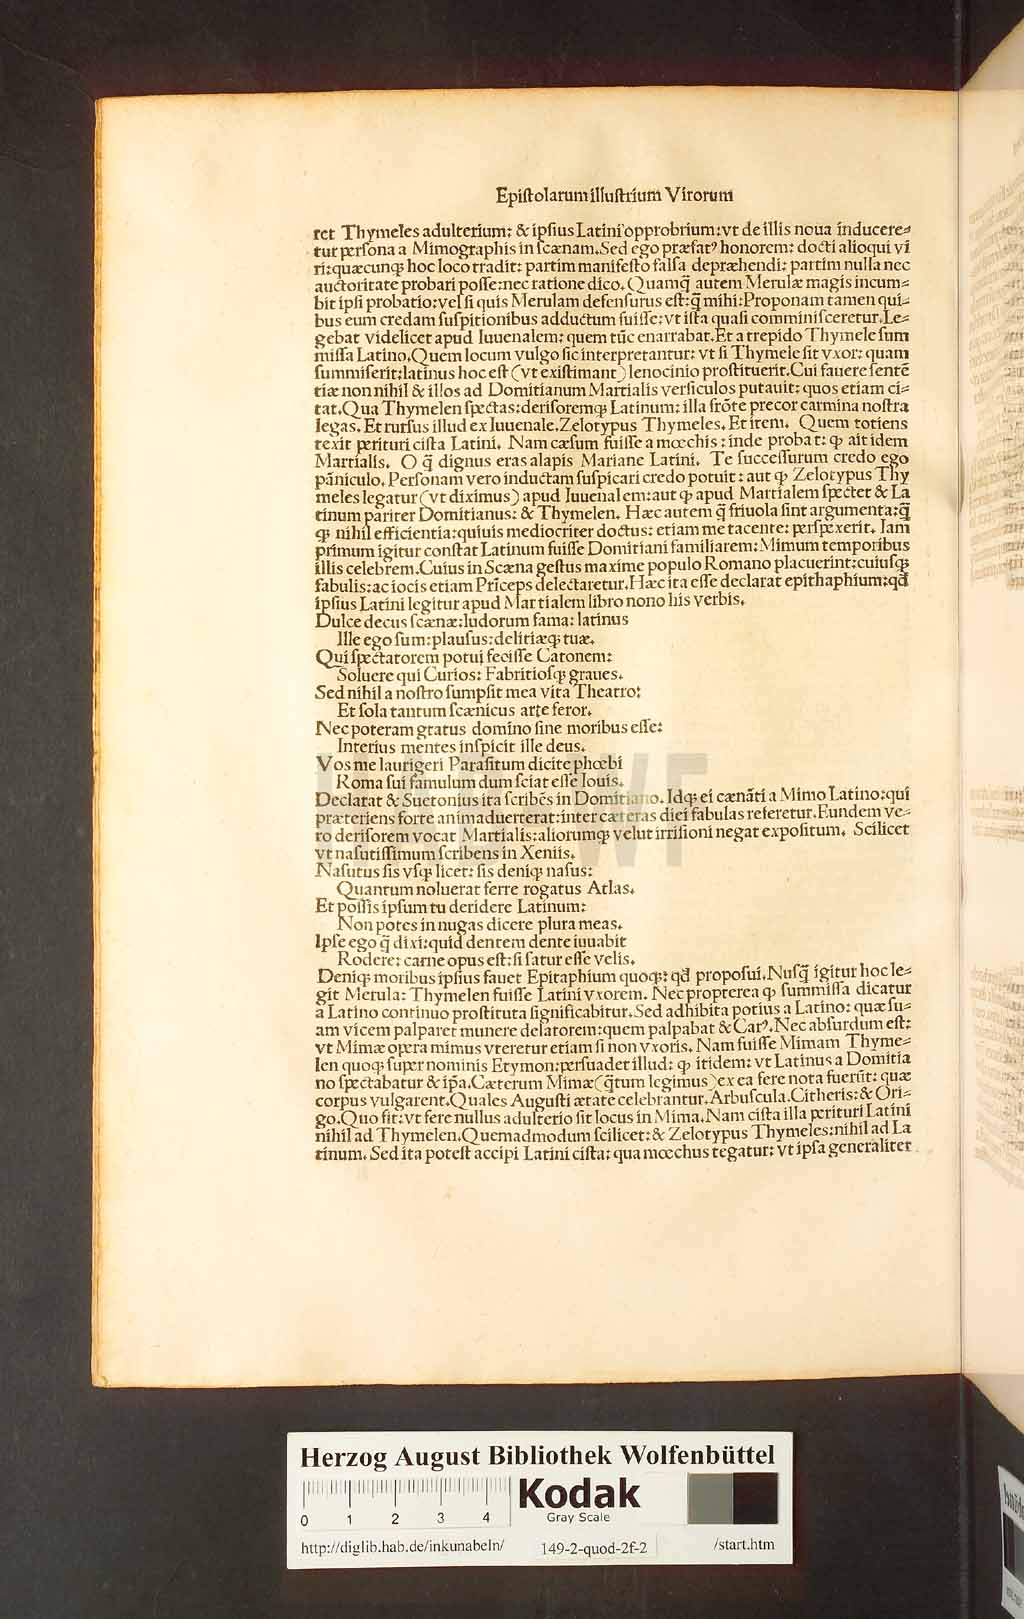 Epiſtolarum illuſtrium Virorum
ret Thymeles adulterium: & ipſius Latini opprobrium: vt de illis noua inducere⸗
tur perſona a Mimographis in ſcænam. Sed ego præfatꝰ honorem: docti alioqui vi
ri: quæcunqꝫ hoc loco tradit: partim manifeſto falſa depræhendi: partim nulla nec
auctoritate probari poſſe: nec ratione dico. Quamq̃ autem Merulæ magis incum⸗
bit ipſi probatio: vel ſi quis Merulam defenſurus eſt: q̃ mihi: Proponam tamen qui⸗
bus eum credam ſuſpitionibus adductum fuiſſe: vt iſta quaſi comminiſceretur. Le⸗
gebat videlicet apud Iuuenalem: quem tũc enarrabat. Et a trepido Thymele ſum
miſſa Latino. Quem locum vulgo ſic interpretantur: vt ſi Thymele ſit vxor: quam
ſummiſerit: latinus hoc eſt (vt exiſtimant) lenocinio proſtituerit. Cui fauere ſentẽ
tiæ non nihil & illos ad Domitianum Martialis verſiculos putauit: quos etiam ci⸗
tat. Qua Thymelen ſpectas: deriſoremqꝫ Latinum: illa frõte precor carmina noſtra
legas. Et rurſus illud ex Iuuenale. Zelotypus Thymeles. Et item. Quem totiens
texit perituri ciſta Latini. Nam cæſum fuiſſe a mœchis: inde probat: ꝙ ait idem
Martialis. O q̃ dignus eras alapis Mariane Latini. Te ſucceſſurum credo ego
pãniculo. Perſonam vero inductam ſuſpicari credo potuit: aut ꝙ Zelotypus Thy
meles legatur (vt diximus) apud Iuuenalem: aut ꝙ apud Martialem ſpectet & La
tinum pariter Domitianus: & Thymelen. Hæc autem q̃ friuola ſint argumenta: q̃
ꝙ nihil efficientia: quiuis mediocriter doctus: etiam me tacente: perſpexerit. Iam
primum igitur conſtat Latinum fuiſſe Domitiani familiarem: Mimum temporibus
illis celebrem. Cuius in Scæna geſtus maxime populo Romano placuerint: cuiuſqꝫ
fabulis: ac iocis etiam Prĩceps delectaretur. Hæc ita eſſe declarat epithaphium: qđ
ipſius Latini legitur apud Martialem libro nono his verbis.
Dulce decus ſcænæ: ludorum fama: latinus
Ille ego ſum: plauſus: delitiæqꝫ tuæ.
Qui ſpectatorem potui feciſſe Catonem:
Soluere qui Curios: Fabritioſqꝫ graues.
Sed nihil a noſtro ſumpſit mea vita Theatro:
Et ſola tantum ſcænicus arte feror.
Nec poteram gratus domino ſine moribus eſſe:
Interius mentes inſpicit ille deus.
Vos me laurigeri Paraſitum dicite phœbi
Roma ſui famulum dum ſciat eſſe Iouis.
Declarat & Suetonius ita ſcribẽs in Domitiano. Idqꝫ ei cænãti a Mimo Latino: qui
præteriens forte animaduerterat: inter cæteras diei fabulas referetur. Eundem ve⸗
ro deriſorem vocat Martialis: aliorumqꝫ velut irriſioni negat expoſitum. Scilicet
vt naſutiſſimum ſcribens in Xeniis.
Naſutus ſis vſqꝫ licet: ſis deniqꝫ naſus:
Quantum noluerat ferre rogatus Atlas.
Et poſſis ipſum tu deridere Latinum:
Non potes in nugas dicere plura meas.
Ipſe ego q̃ dixi: quid dentem dente iuuabit
Rodere: carne opus eſt: ſi ſatur eſſe velis.
Deniqꝫ moribus ipſius fauet Epitaphium quoqꝫ: qđ propoſui. Nuſq̃ igitur hoc le⸗
git Merula: Thymelen fuiſſe Latini vxorem. Nec propterea ꝙ ſummiſſa dicatur
a Latino continuo proſtituta ſignificabitur. Sed adhibita potius a Latino: quæ ſu⸗
am vicem palparet munere delatorem: quem palpabat & Carꝰ. Nec abſurdum eſt:
vt Mimæ opera mimus vteretur etiam ſi non vxoris. Nam fuiſſe Mimam Thyme⸗
len quoqꝫ ſuper nominis Etymon: perſuadet illud: ꝙ itidem: vt Latinus a Domitia
no ſpectabatur & ip̃a. Cæterum Mimæ (q̃tum legimus) ex ea fere nota fuerũt: quæ
corpus vulgarent. Quales Auguſti ætate celebrantur. Arbuſcula. Citheris: & Ori⸗
go. Quo fit: vt fere nullus adulterio ſit locus in Mima. Nam ciſta illa perituri Latini
nihil ad Thymelen. Quemadmodum ſcilicet: & Zelotypus Thymeles: nihil ad La
tinum. Sed ita poteſt accipi Latini ciſta: qua mœchus tegatur: vt ipſa generaliter
HAB WF
Herzog August Bibliothek Wolfenbüttel
0 1 2 3 4
Kodak
Gray Scale
http://diglib.hab.de/inkunabeln/ 149-2-quod-2f-2 /start.htm